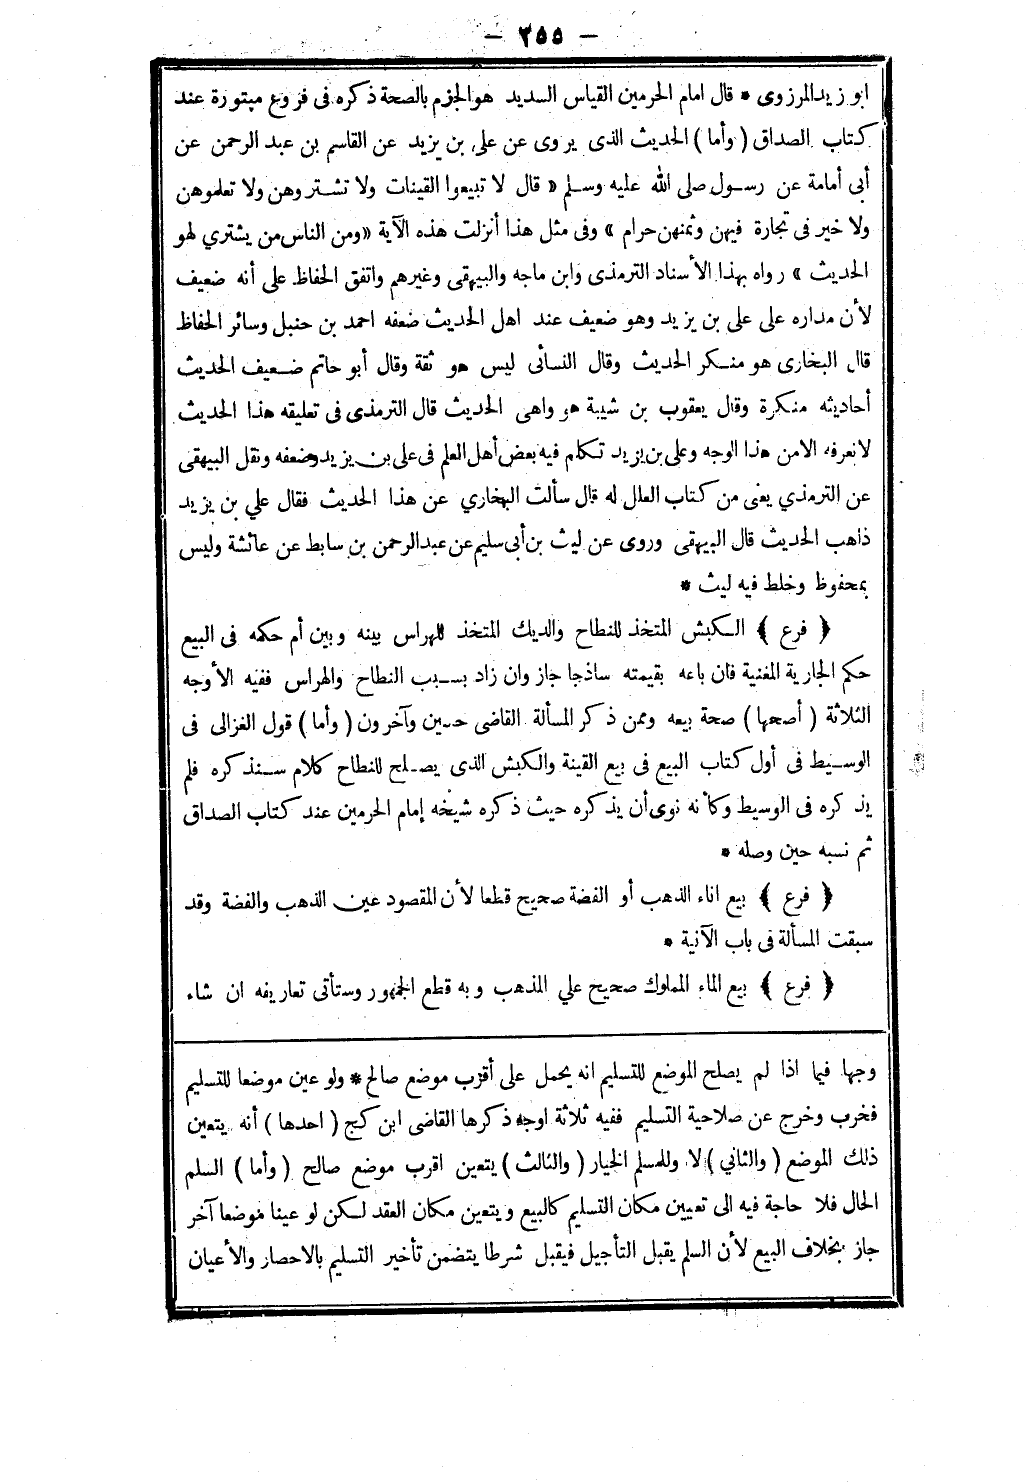 — ٢٥٥ —
ابو زيد المرزوى * قال امام الحرمين القياس السديد هو الجزم بالصحة ذكره فى فروع مبتورة عند
كتاب الصداق (وأما) الحديث الذى يروى عن على بن يزيد عن القاسم بن عبد الرحمن عن
أبى أمامة عن رسول صلى الله عليه وسلم « قال لا تبيعوا القينات ولا تشتروهن ولا تعلموهن
ولا خير فى تجارة فيهن وثمنهن حرام » وفى مثل هذا أنزلت هذه الآية «ومن الناس من يشتري لهو
الحديث » رواه بهذا الأسناد الترمذى وابن ماجه والبيهقى وغيرهم واتفق الحفاظ على أنه ضعيف
لأن مداره على على بن يزيد وهو ضعيف عند اهل الحديث ضعفه احمد بن حنبل وسائر الحفاظ
قال البخارى هو منكر الحديث وقال النسائى ليس هو ثقة وقال أبو حاتم ضعيف الحديث
أحاديثه منكرة وقال يعقوب بن شيبة هو واهى الحديث قال الترمذى فى تعليقه هذا الحديث
لانعرفه الامن هذا الوجه وعلى بن يزيد تكلم فيه بعض أهل العلم فى على بن يزيد وضعفه ونقل البيهقى
عن الترمذي يعنى من كتاب العلل له قال سألت البخاري عن هذا الحديث فقال علي بن يزيد
ذاهب الحديث قال البيهقى وروى عن ليث بن أبى سليم عن عبد الرحمن بن سابط عن عائشة وليس
بمحفوظ وخلط فيه ليث *
﴿ فرع ﴾ الكبش المتخذ للنطاح والديك المتخذ للهراس بينه وبين أم حكمه فى البيع
حكم الجارية المغنية فان باعه بقيمته ساذجا جاز وان زاد بسبب النطاح والهراس ففيه الأوجه
الثلاثة (أصحها) صحة بيعه وممن ذكر المسألة القاضى حسين وآخرون (وأما) قول الغزالى فى
الوسيط فى أول كتاب البيع فى بيع القينة والكبش الذى يصلح للنطاح كلام سنذكره فلم
يذكره فى الوسيط وكأنه نوى أن يذكره حيث ذكره شيخه إمام الحرمين عند كتاب الصداق
ثم نسبه حين وصله *
﴿ فرع ﴾ بيع اناء الذهب أو الفضة صحيح قطعا لأن المقصود عين الذهب والفضة وقد
سبقت المسألة فى باب الآنية *
﴿ فرع ﴾ بيع الماء المملوك صحيح علي المذهب وبه قطع الجمهور وستأتى تعاريفه ان شاء
وجها فيما اذا لم يصلح الموضع للتسليم انه يحمل على أقرب موضع صالح * ولو عين موضعا للتسليم
فخرب وخرج عن صلاحية التسليم ففيه ثلاثة اوجه ذكرها القاضى ابن كج (احدها) أنه يتعين
ذلك الموضع (والثاني) لا وللمسلم الخيار (والثالث) يتعين اقرب موضع صالح (وأما) السلم
الحال فلا حاجة فيه الى تعيين مكان التسليم كالبيع ويتعين مكان العقد لكن لو عينا موضعا آخر
جاز بخلاف البيع لأن السلم يقبل التأجيل فيقبل شرطا يتضمن تأخير التسليم بالاحصار والأعيان